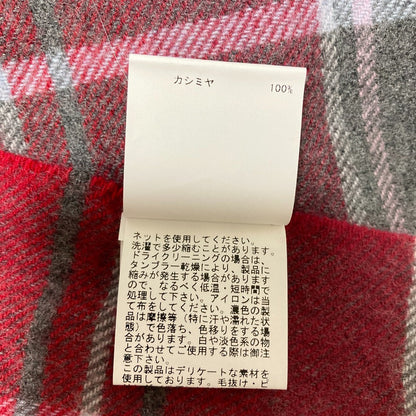 カシミヤ 100%
ネットを使用してください。
洗濯で多少縮むことがあります。
ドライクリーニングの場合は、
タンブラー乾燥により、製品に
縮みが発生する場合があります
ので、なるべく低温・短時間で
処理して下さい。アイロンは当
て布をしてください。濃色の製
品は摩擦等（特に汗や濡れた状
態）で色落ち、色移りをする場
合があります。白や淡色系の物
と合わせてご使用する際は御注
意下さい。
この製品はデリケートな素材を
使用しております。毛抜け・ピ